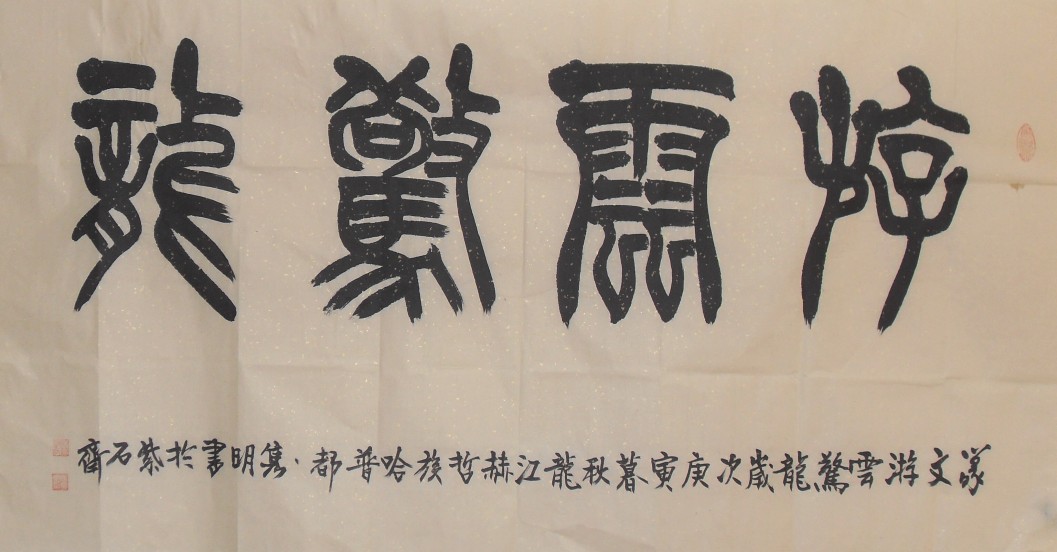 游雲驚龍
篆文游雲驚龍歲次庚寅暮秋龍江赫哲族哈普都·隽明書於紫石齋